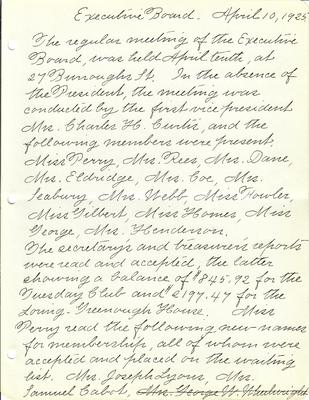 Executive Board. April 10, 1925
The regular meeting of the Executive
Board, was held April tenth, at
27 Burroughs St. In the absence of
the President, the meeting was
conducted by the first vice president
Mrs. Charles H. Curtis, and the
following members were present.
Miss Perry, Mrs. Rees, Mrs. Dane,
Mrs. Eldridge, Mrs. Coe, Mrs.
Seabury, Mrs. Webb, Miss Fowler,
Miss Gilbert, Miss Homes, Miss
George, Mrs. Henderson.
The secretary's and treasurer's reports
were read and accepted, the latter
showing a balance of $845.92 for the
Tuesday Club and $2197.47 for the
Loring-Greenough House. Miss
Perry read the following new names
for membership, all of whom were
accepted and placed on the waiting
list. Mrs. Joseph Lyons, Mrs.
Samuel Cabot, Mrs. George W. Wheelwright